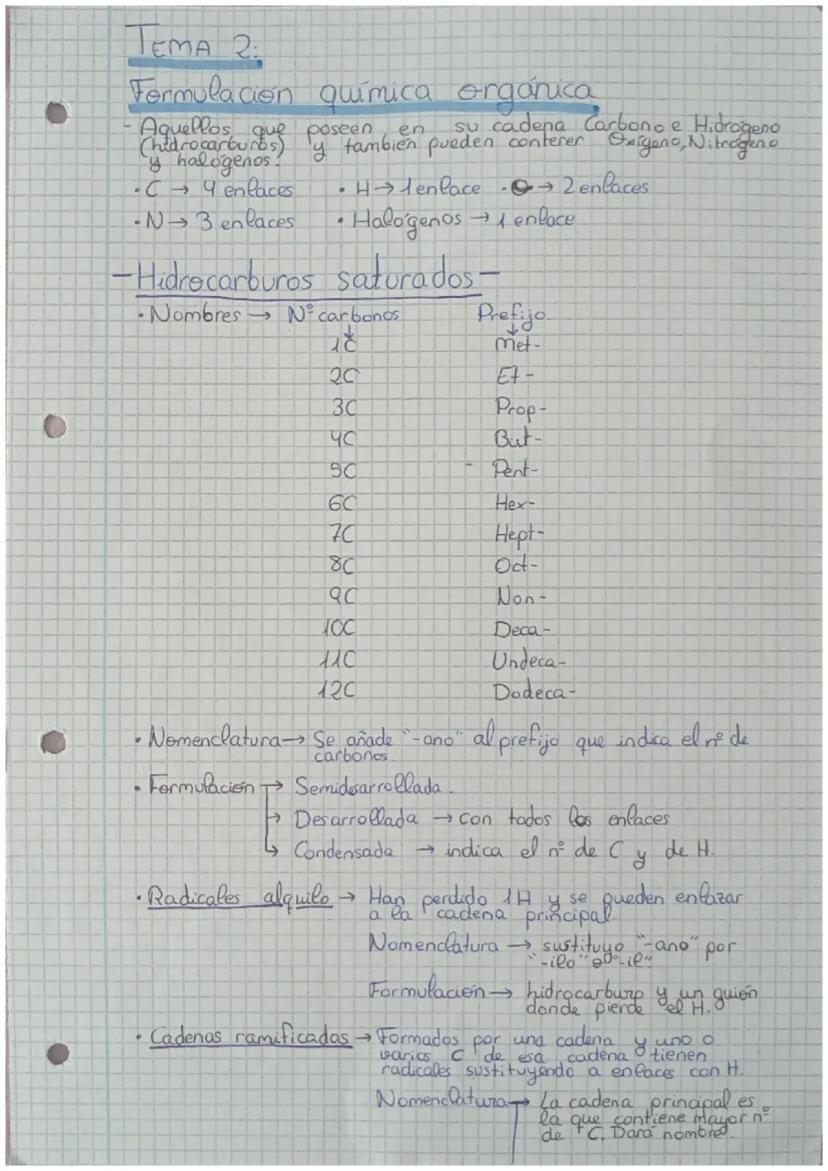 TEMA 2:
Formulacion química orgánica
- Aquellos que poseen en su cadena Carbono e Hidrogeno
(hidrocarburos) y tambien pueden contener Oxígeno, Nitrógeno
y halógenos.
· C → 4 enlaces · H → 1 enlace · O → 2 enlaces
· N → 3 enlaces · Halógenos → 1 enlace
- Hidrocarburos saturados -
· Nombres → Nº carbonos Prefijo
↓ ↓
1C Met-
2C Et-
3C Prop-
4C But-
5C - Pent-
6C Hex-
7C Hept-
8C Oct-
9C Non-
10C Deca-
11C Undeca-
12C Dodeca-
· Nomenclatura → Se añade "-ano" al prefijo que indica el nº de
carbonos.
· Formulación → Semidesarrollada.
→ Desarrollada → con todos los enlaces
→ Condensada → indica el nº de C y de H.
· Radicales alquilo → Han perdido 1H y se pueden enlazar
a la cadena principal.
Nomenclatura → sustituyo "-ano" por
"-ilo" o "-il".
Formulación → hidrocarburo y un guión
donde pierde el H.
· Cadenas ramificadas → Formados por una cadena y uno o
varios C de esa cadena tienen
radicales sustituyendo a enlaces con H.
Nomenclatura → La cadena principal es
la que contiene mayor nº
de C. Dará nombre.